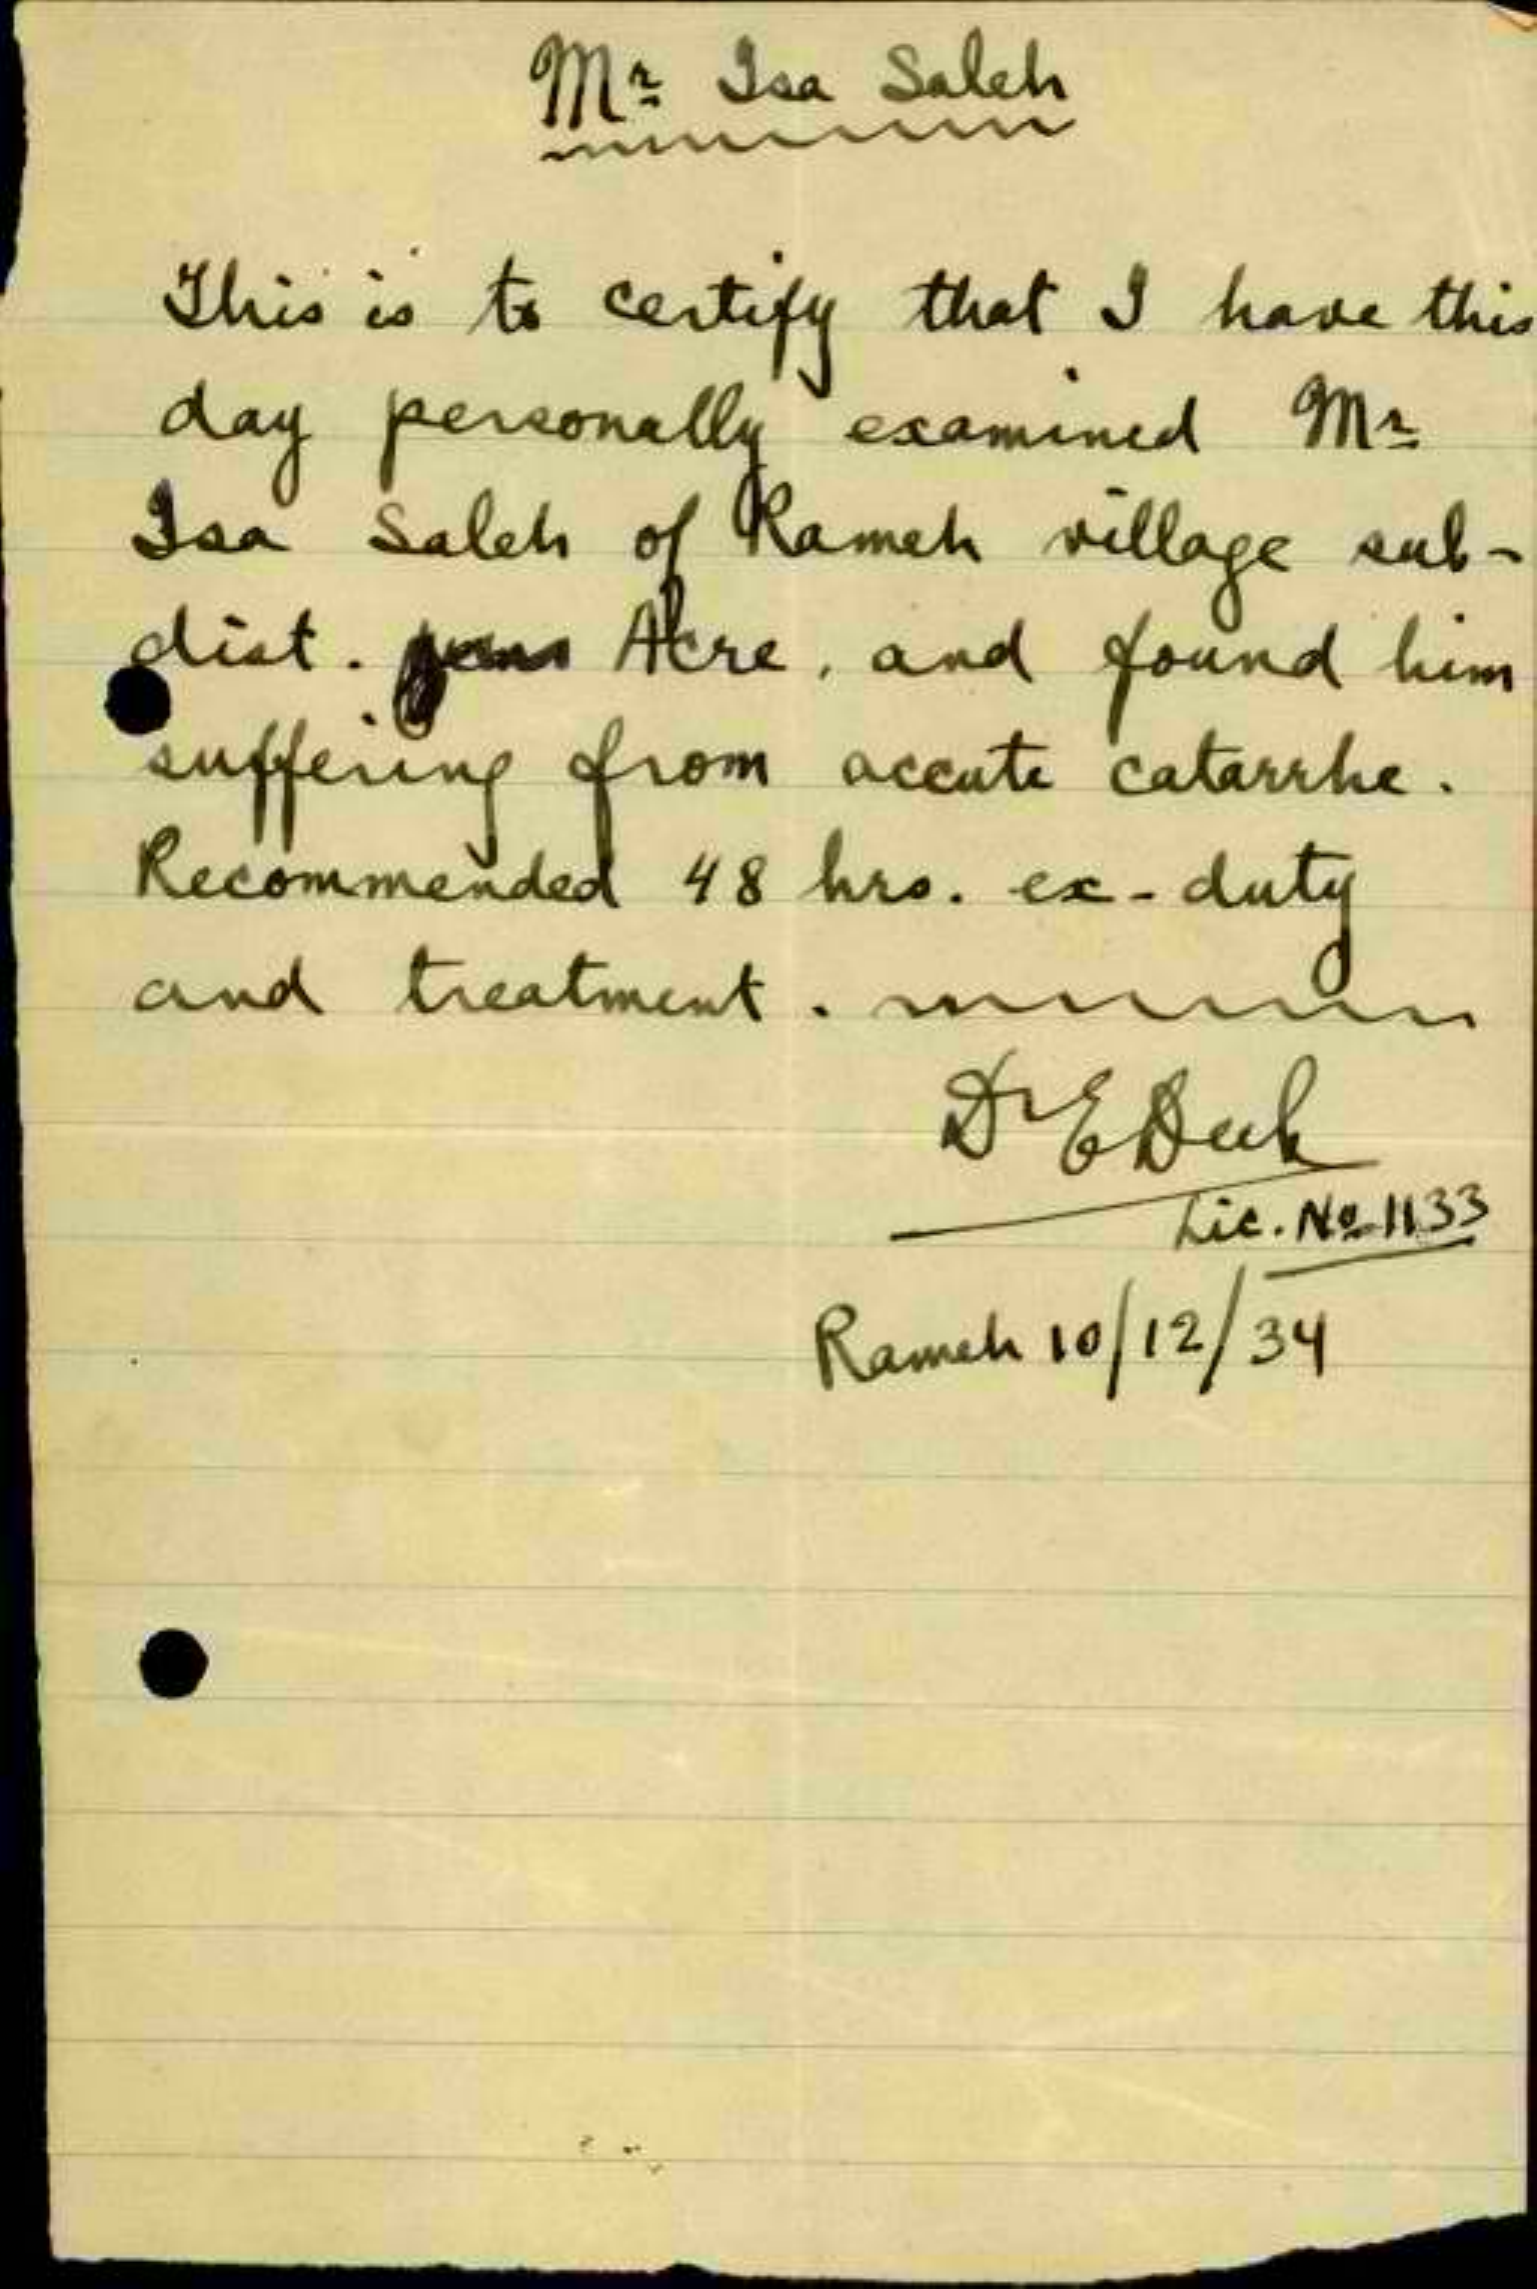 Mr Isa Saleh
This is to certify that I have this
day personally examined Mr
Isa Saleh of Rameh village sub-
dist. Acre, and found him
suffering from accute catarrhe.
Recommended 48 hrs. ex-duty
and treatment.
Dr E Deek
Lic. No 1133
Rameh 10/12/34